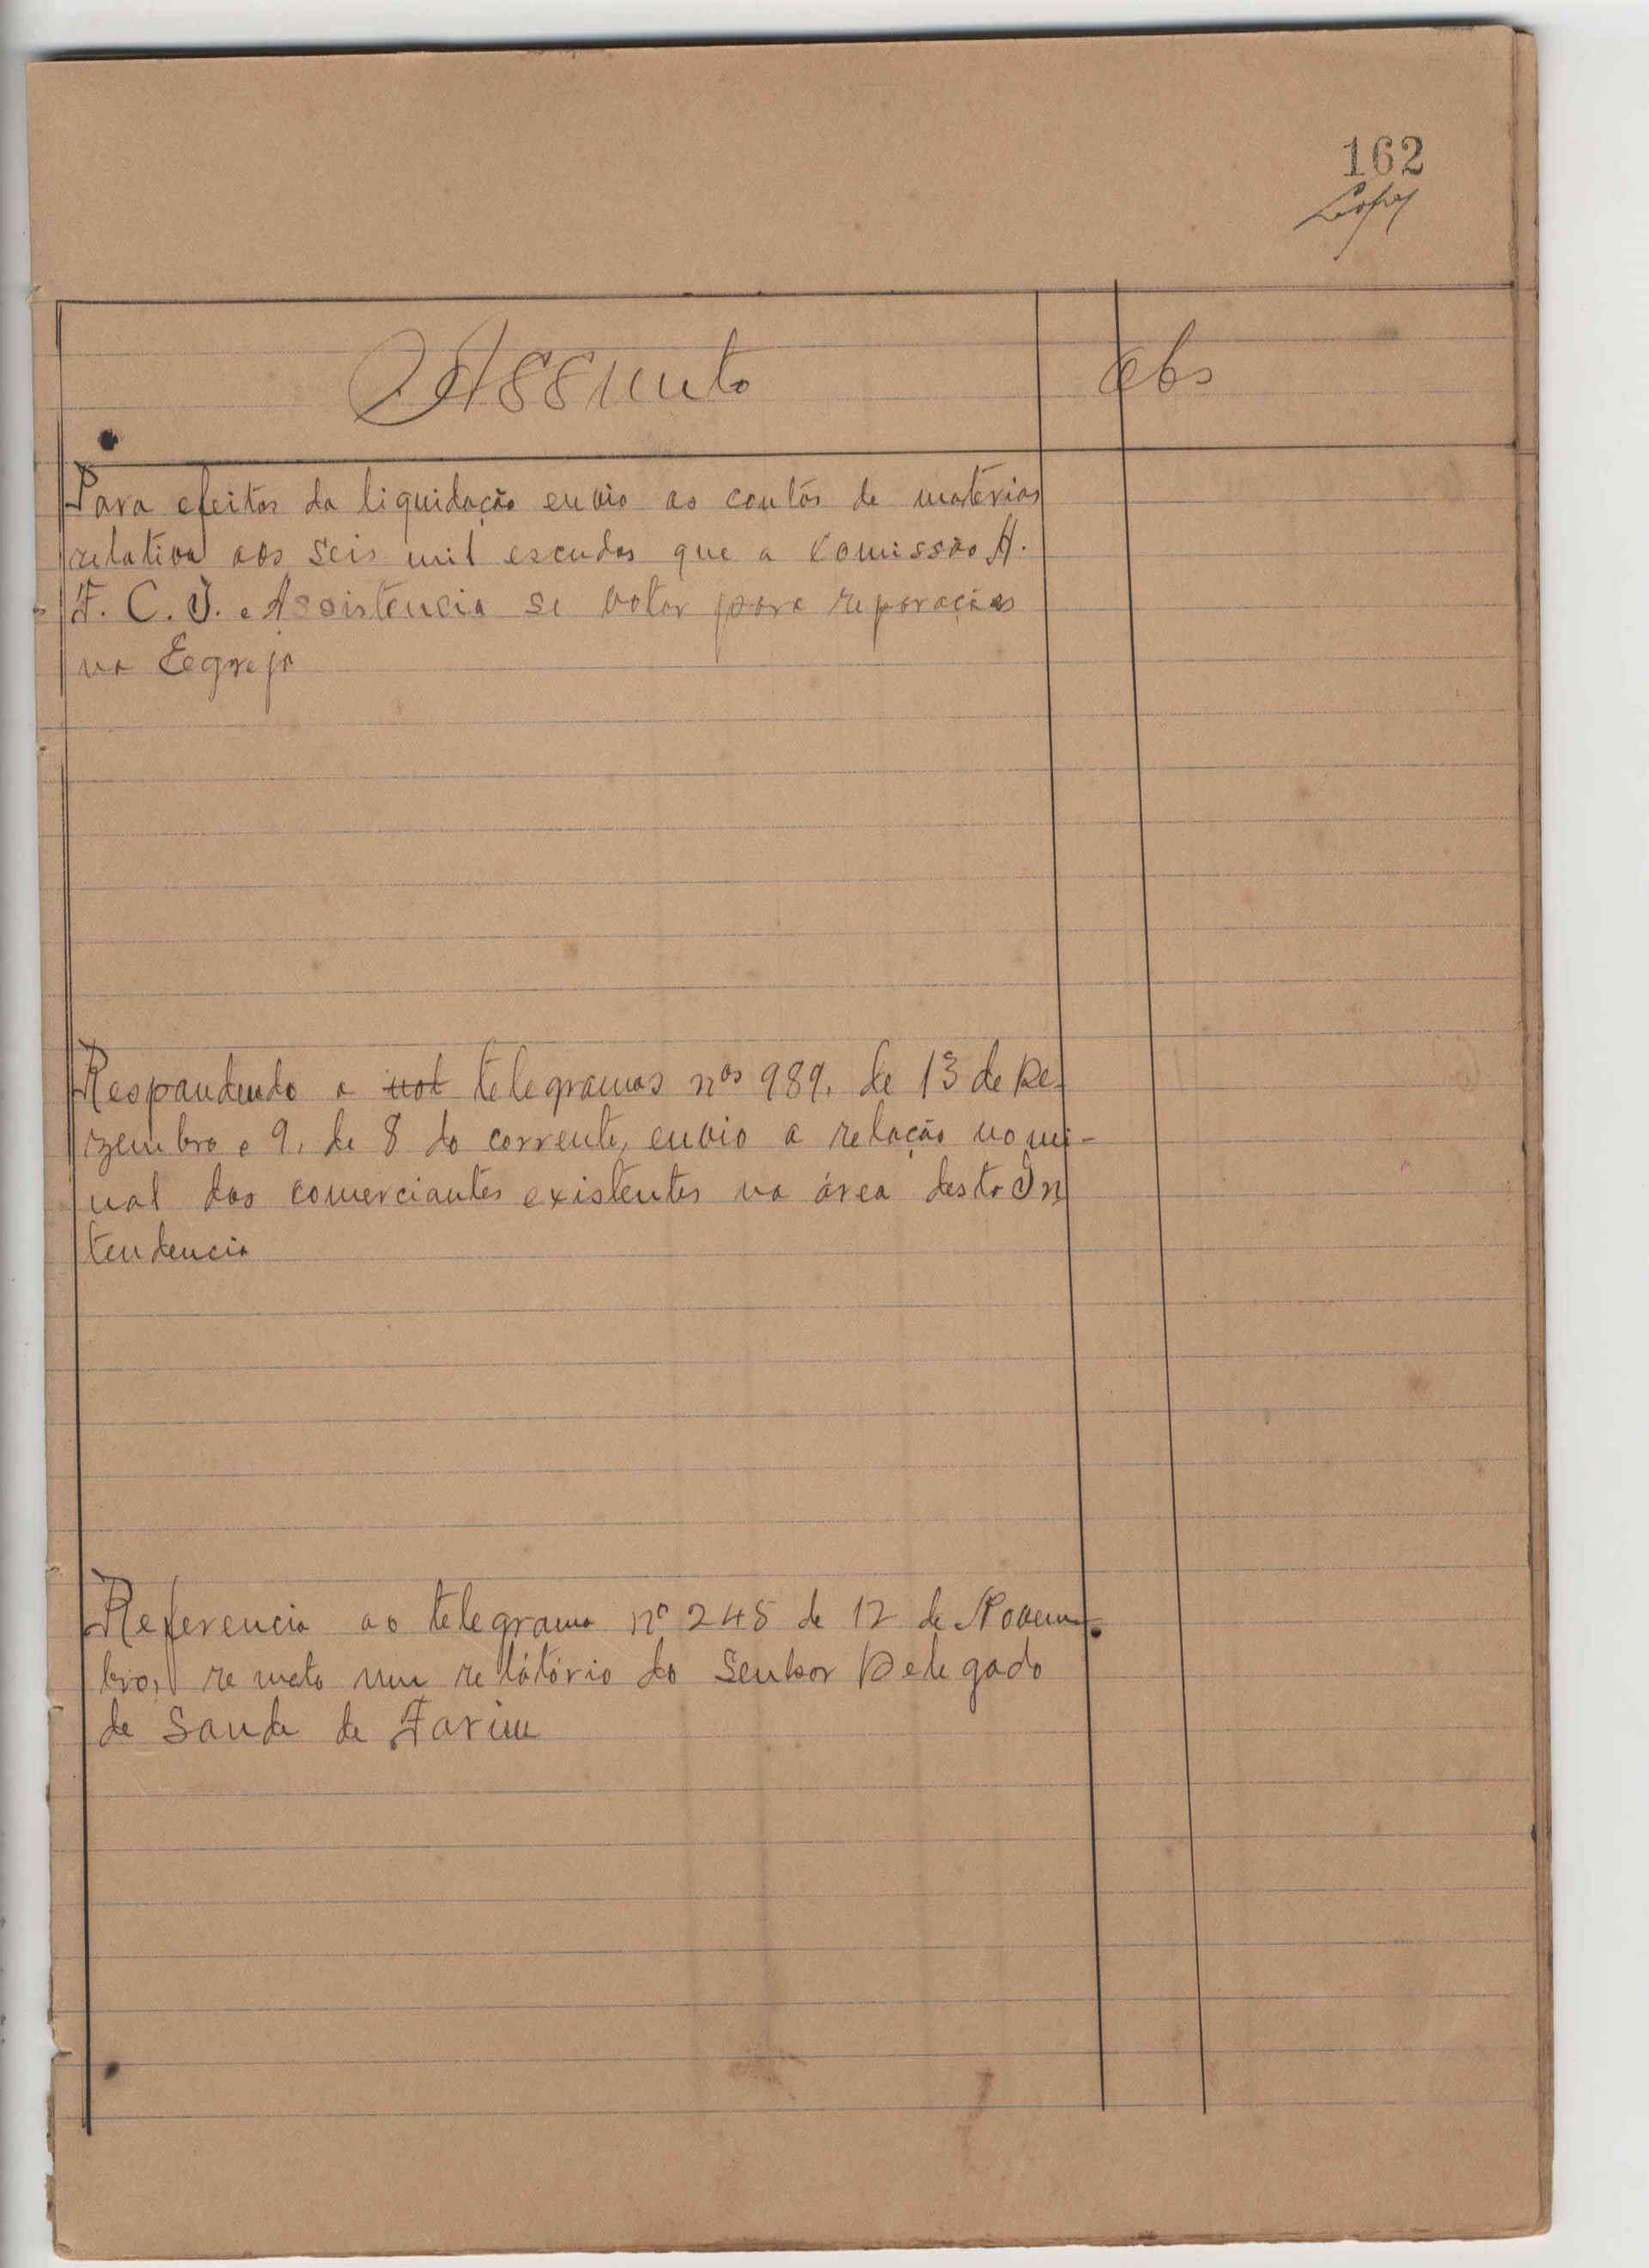 162
Lopes
Assunto
Obs
Para efeitos da liquidação envio as contas de materias
relativa aos seis mil escudos que a Comissão A.
F. C. I. e Assistencia se votar para reparações
na Eegreja
Respondendo a telegramas nos 989, de 13 de De-
zembro e 9, de 8 do corrente, envio a relação nomi-
nal dos comerciantes existentes na área desta In
tendencia
Referencia ao telegrama nº 245 de 12 de Novem-
bro, remeto um relátório do Senhor Delegado
de Saude de Farim